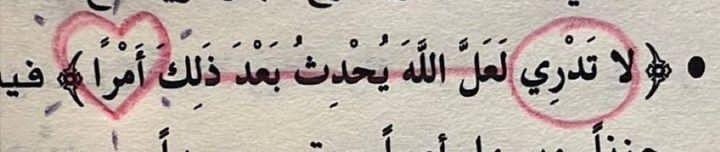 • ﴿ لا تَدْرِي لَعَلَّ اللَّهَ يُحْدِثُ بَعْدَ ذَلِكَ أَمْرًا ﴾ فيا